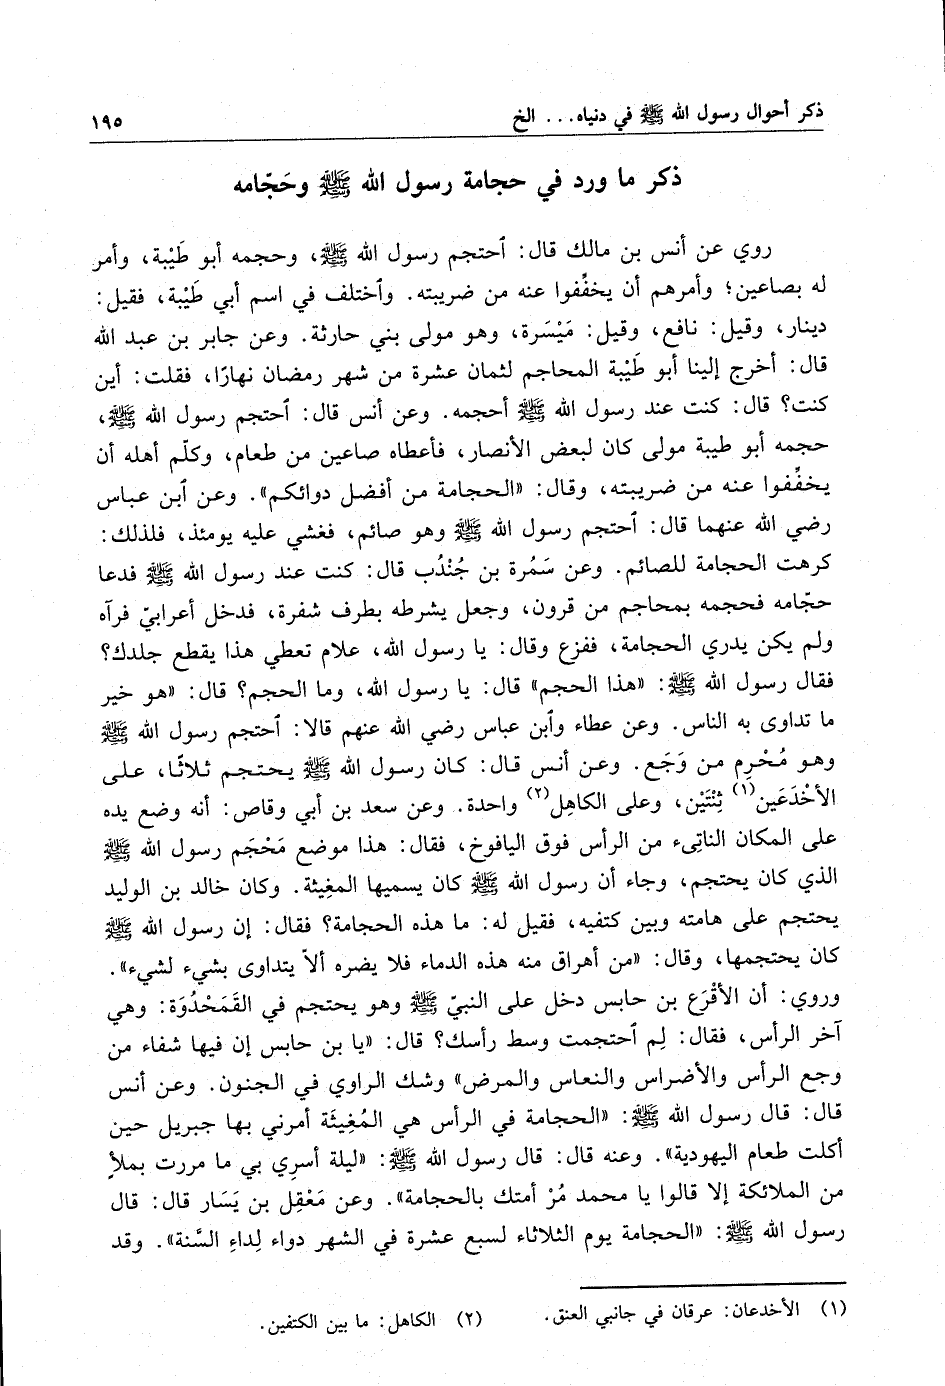 ذكر أحوال رسول الله ﷺ في دنياه... الخ ١٩٥
ذكر ما ورد في حجامة رسول الله ﷺ وحَجّامه
روي عن أنس بن مالك قال: ٱحتجم رسول الله ﷺ، وحجمه أبو طَيْبة، وأمر
له بصاعين؛ وأمرهم أن يخفِّفوا عنه من ضريبته. وٱختلف في اسم أبي طَيْبة، فقيل:
دينار، وقيل: نافع، وقيل: مَيْسَرة، وهو مولى بني حارثة. وعن جابر بن عبد الله
قال: أخرج إلينا أبو طَيْبة المحاجم لثمان عشرة من شهر رمضان نهارًا، فقلت: أين
كنت؟ قال: كنت عند رسول الله ﷺ أحجمه. وعن أنس قال: ٱحتجم رسول الله ﷺ،
حجمه أبو طيبة مولى كان لبعض الأنصار، فأعطاه صاعين من طعام، وكلّم أهله أن
يخفِّفوا عنه من ضريبته، وقال: «الحجامة من أفضل دوائكم». وعن ٱبن عباس
رضي الله عنهما قال: ٱحتجم رسول الله ﷺ وهو صائم، فغشي عليه يومئذ، فلذلك:
كرهت الحجامة للصائم. وعن سَمُرة بن جُنْدُب قال: كنت عند رسول الله ﷺ فدعا
حجّامه فحجمه بمحاجم من قرون، وجعل يشرطه بطرف شفرة، فدخل أعرابيّ فرآه
ولم يكن يدري الحجامة، ففزع وقال: يا رسول الله، علام تعطي هذا يقطع جلدك؟
فقال رسول الله ﷺ: «هذا الحجم» قال: يا رسول الله، وما الحجم؟ قال: «هو خير
ما تداوى به الناس. وعن عطاء وٱبن عباس رضي الله عنهم قالا: ٱحتجم رسول الله ﷺ
وهو مُحْرِم من وَجَع. وعن أنس قال: كان رسول الله ﷺ يحتجم ثلاثًا، على
الأخْدَعَين(١) ثِنْتَيْن، وعلى الكاهِل(٢) واحدة. وعن سعد بن أبي وقاص: أنه وضع يده
على المكان الناتىء من الرأس فوق اليافوخ، فقال: هذا موضع مَحْجَم رسول الله ﷺ
الذي كان يحتجم، وجاء أن رسول الله ﷺ كان يسميها المغِيثة. وكان خالد بن الوليد
يحتجم على هامته وبين كتفيه، فقيل له: ما هذه الحجامة؟ فقال: إن رسول الله ﷺ
كان يحتجمها، وقال: «من أهراق منه هذه الدماء فلا يضره ألاّ يتداوى بشيء لشيء».
وروي: أن الأقْرَع بن حابس دخل على النبيّ ﷺ وهو يحتجم في القَمَحْدُوَة: وهي
آخر الرأس، فقال: لِم ٱحتجمت وسط رأسك؟ قال: «يا بن حابس إن فيها شفاء من
وجع الرأس والأضراس والنعاس والمرض» وشك الراوي في الجنون. وعن أنس
قال: قال رسول الله ﷺ: «الحجامة في الرأس هي المُغِيثَة أمرني بها جبريل حين
أكلت طعام اليهودية». وعنه قال: قال رسول الله ﷺ: «ليلة أسرِي بي ما مررت بملأٍ
من الملائكة إلا قالوا يا محمد مُرْ أمتك بالحجامة». وعن مَعْقِل بن يَسَار قال: قال
رسول الله ﷺ: «الحجامة يوم الثلاثاء لسبع عشرة في الشهر دواء لِداءِ السَّنة». وقد
(١) الأخدعان: عرقان في جانبي العنق. (٢) الكاهل: ما بين الكتفين.